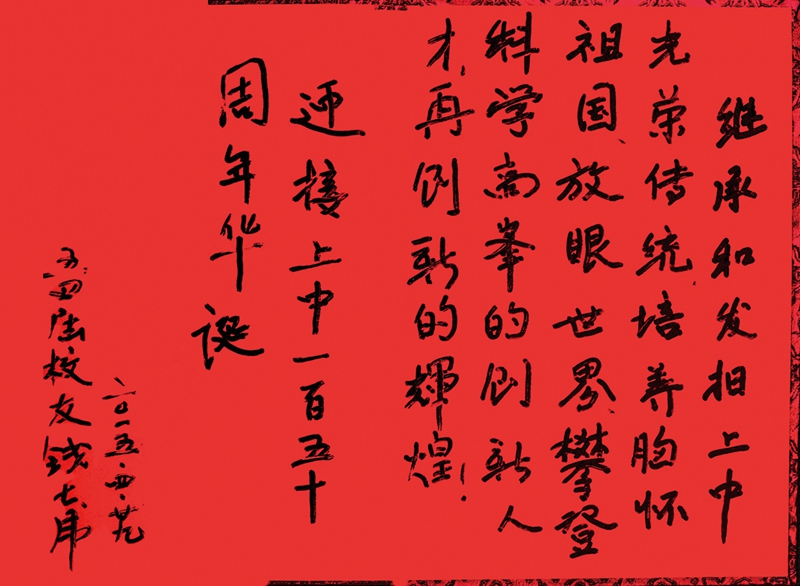 继承和发扬上中
光荣传统培养胸怀
祖国、放眼世界、攀登
科学高峯的创新人
才,再创新的輝煌!
迎接上中一百五十
周年华诞
二〇一五.四.廿九
五四届校友钱七虎